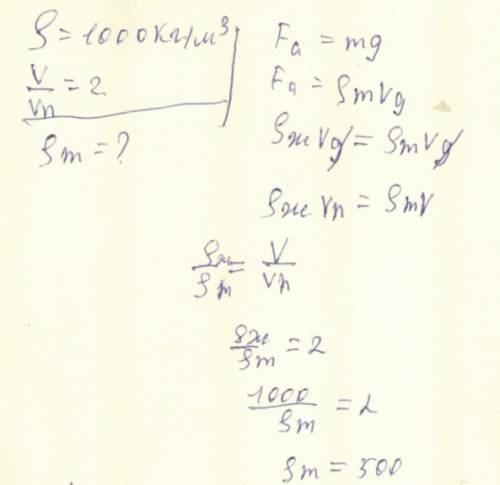 ρ = 1000 кг/м³
V/Vп = 2
ρт = ?
Fа = mg
Fа = ρтVg
ρжVg = ρтVg
ρжVп = ρтV
ρж/ρт = V/Vп
ρж/ρт = 2
1000/ρт = 2
ρт = 500